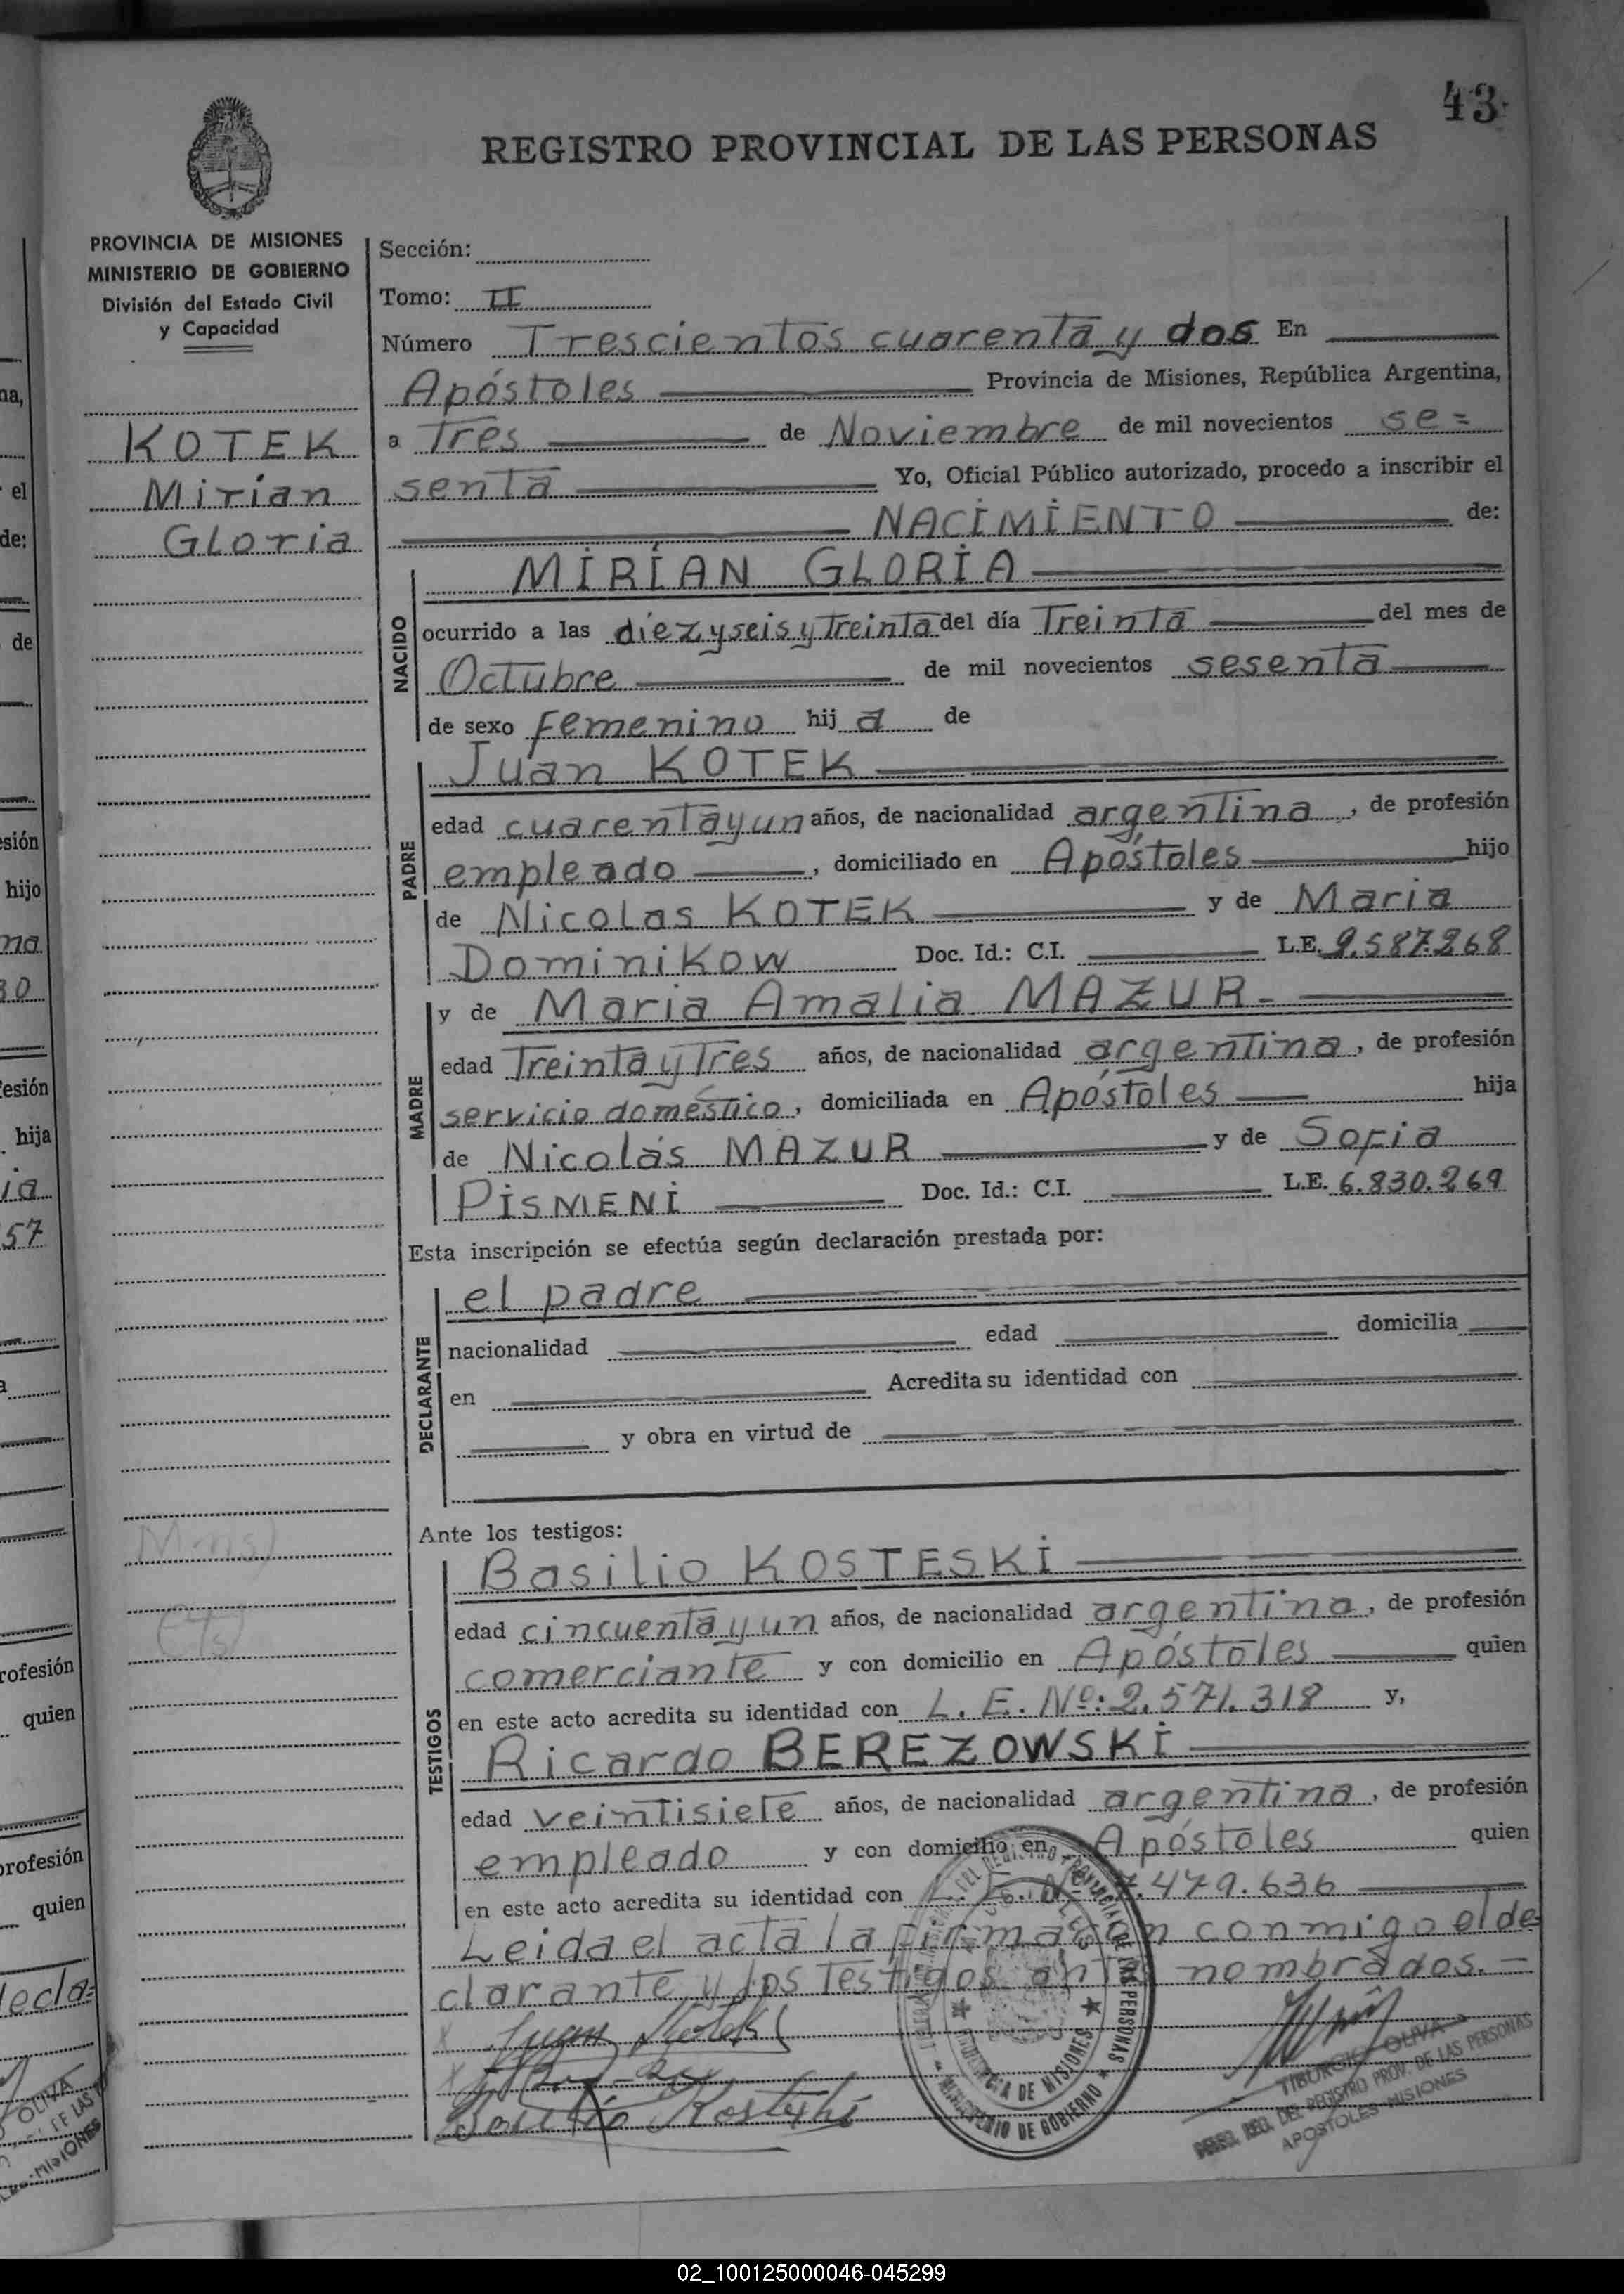 43
REGISTRO PROVINCIAL DE LAS PERSONAS
PROVINCIA DE MISIONES
MINISTERIO DE GOBIERNO
División del Estado Civil
y Capacidad
KOTEK
Mirian
Gloria
Sección:
Tomo: II
Número Trescientos cuarenta y dos En
Apóstoles Provincia de Misiones, República Argentina,
a Tres de Noviembre de mil novecientos se=
senta Yo, Oficial Público autorizado, procedo a inscribir el
NACIMIENTO de:
MIRIAN GLORIA
NACIDO
ocurrido a las diez y seis y Treinta del día Treinta del mes de
Octubre de mil novecientos sesenta
de sexo Femenino hij a de
Juan KOTEK
PADRE
edad cuarenta y un años, de nacionalidad argentina, de profesión
empleado, domiciliado en Apóstoles hijo
de Nicolas KOTEK y de Maria
Dominikow Doc. Id.: C.I. L.E. 9.587.268
y de Maria Amalia MAZUR.-
MADRE
edad Treinta y Tres años, de nacionalidad argentina, de profesión
servicio doméstico, domiciliada en Apóstoles hija
de Nicolás MAZUR y de Sofia
PISMENI Doc. Id.: C.I. L.E. 6.830.269
Esta inscripción se efectúa según declaración prestada por:
el padre
DECLARANTE
nacionalidad edad domicilia
en Acredita su identidad con
y obra en virtud de
Ante los testigos:
Basilio KOSTESKI
TESTIGOS
edad cincuenta y un años, de nacionalidad argentina, de profesión
comerciante y con domicilio en Apóstoles quien
en este acto acredita su identidad con L. E. Nº: 2.571.318 y,
Ricardo BEREZOWSKI
edad veintisiete años, de nacionalidad argentina, de profesión
empleado y con domicilio en Apóstoles quien
en este acto acredita su identidad con L. E. Nº 479.636
Leida el acta la firmaron conmigo el de=
clarante y los Testigos antes nombrados.-
Juan Kotek
Basilio Kosteski
PROVINCIA DE MISIONES
MINISTERIO DE GOBIERNO
TIBURCIO OLIVA
DEL REGISTRO PROV. DE LAS PERSONAS
APOSTOLES-MISIONES
02_100125000046-045299